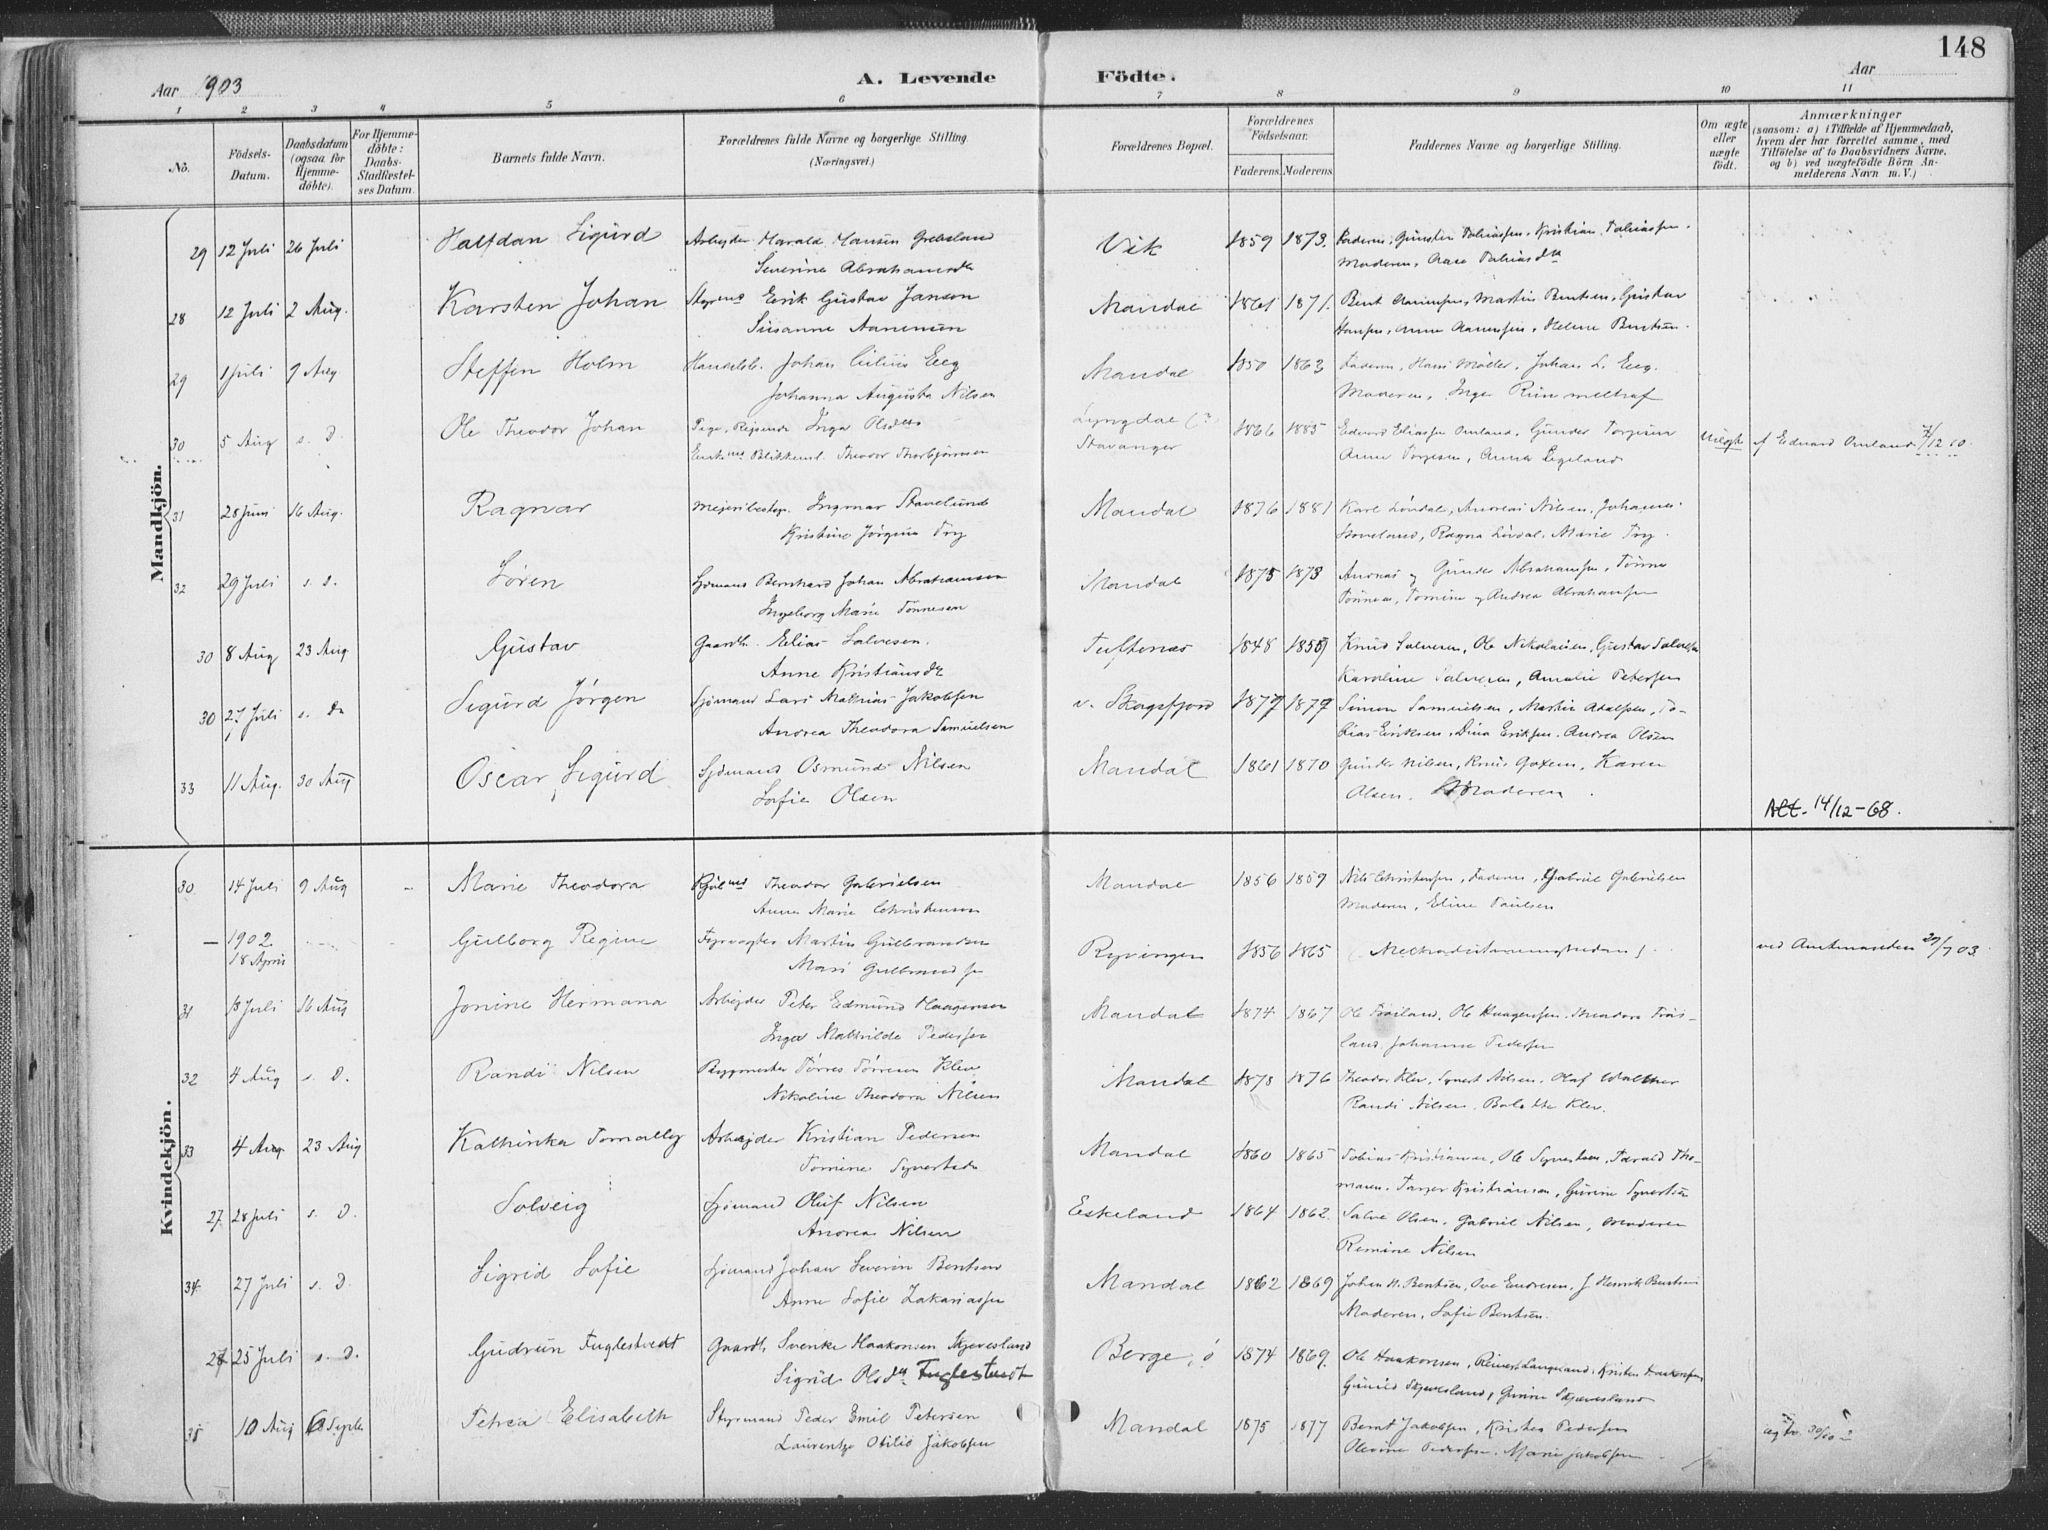 148
Aar 1903
A. Levende Födte.
Aar
1 2 3 4 5 6 7 8 9 10 11
No.
Födsels-Datum.
Daabsdatum (ogsaa for Hjemmedöbte).
For Hjemmedöbte: Daabs-Stadfæstelses Datum.
Barnets fulde Navn.
Forældrenes fulde Navne og borgerlige Stilling. (Næringsvei.)
Forældrenes Bopæl.
Forældrenes Födselsaar.
Faderens Moderens
Faddernes Navne og borgerlige Stilling.
Om ægte eller uægte födt.
Anmærkninger (saasom: a) i Tilfælde af Hjemmedaab, hvem der har forrettet samme, med Tilföielse af to Daabsvidners Navne, og b) ved uægtefödte Börn Anmelderens Navn m. V.)
Mandkjön.
29 12 Juli 26 Juli Halfdan Sigurd Arbejder Harald Hansen Grebsland Vik 1859 1873
Severine Abrahamsdtr Moderen, Aase Tobiasdtr
28 12 Juli 2 Aug. Karsten Johan Erik Gustav Jansen Mandal 1861 1871. Bent Aanensen, Martin Bentsen, Gustav
Susanne Aanensen Hansen, Anne Aanensen, Helene Bentsen.
29 1 Juli 9 Aug Steffen Holm Handelsb. Johan Cilius Eeg Mandal 1850 1863 Faderen, Hans Möller, Johan L. Eeg.
Johanna Augusta Nilsen Moderen, Inger
30 5 Aug s. D. Ole Theodor Johan Pige, Rejsende Inga Olsdtr Lyngdal (?) 1866 1885 Edvard Eliassen Omland, Gunder Torjesen Uægte f Edvard Omland 7/12 10.
Blikkensl. Theodor Thorbjørnsen Stavanger Anne Torjesen, Anna Egeland
31 28 Juni 16 Aug. Ragnar Mejeribestyr. Ingmar Stavelund Mandal 1876 1881 Karl Lindal, Andreas Nilsen, Johannes
Kristine Jørgine Try Ragna Lindal, Marie Try.
32 29 Juli s. d. Søren Sjømand Bernhard Johan Abrahamsen Mandal 1875 1873 Andreas og Gunder Abrahamsen, Tønnes
Ingeborg Marie Tönnesen Tönnesen, Tomine og Andrea Abrahamsen
30 8 Aug 23 Aug. Gustav Gaardb. Elias Salvesen. Tuftenes 1848 1859 Knud Salvesen, Ole Nikolaisen, Gustav Salvesen
Anne Kristiansdtr Karoline Salvesen, Amalie Petersen
30 27 Juli s. D. Sigurd Jørgen Sjømand Lars Mathias Jakobsen v. Skogsfjord 1877 1879 Simon Samuelsen, Martin Adolfsen, To-
Andrea Theodora Samuelsen bias Eriksen, Dina Eriksen, Andrea Olsen
33 11 Aug. 30 Aug Oscar Sigurd Sjömand Osmund Nilsen Mandal 1861 1870 Gunder Nilsen, Karen
Sofie Olsen Olsen. Moderen.
Att. 14/12-68.
Kvindekjön.
30. 14 Juli 9 Aug - Marie Theodora Theodor Gabrielsen Mandal 1856 1859 Nils Christensen, Faderen, Gabriel Gabrielsen
Anne Marie Christensen Moderen, Eline Paulsen
- 1902 Gulborg Regine Fyrvogter Martin Gulbrandsen Ryvingen 1856 1865 ved Amtmanden 29/7 03.
18 April Mari Gulbrandsen
31 8 Juli 16 Aug Jonine Hermana Arbejder Peter Edmund Haagensen Mandal 1874 1867 Ole Haagensen, Theodora
Inger Mathilde Pedersen land, Johanne Pedersen
32 4 Aug s. D. Randi Nilsen Bygmester Tørres Tørresen Klev Mandal 1873 1876 Theodor Klev, Syvert Nilsen, Olaf Walther
Nikoline Theodora Nilsen Randi Nilsen, Klev.
33 4 Aug 23 Aug Kathinka Arbejder Kristian Pedersen Mandal 1860 1865 Tobias Kristiansen, Ole Syvertsen, Tho-
Tomine masen, Kristiansen, Gurine Syvertsen
27. 28 Juli s. D. Solveig Sjømand Oluf Nilsen Eskeland 1864 1862. Salve Olsen, Gabriel Nilsen, Moderen
Andrea Nilsen Remine Nilsen
34. 27 Juli s. D. Sigrid Sofie Sjømand Johan Severin Bentsen Mandal 1862 1869 Johan H. Bentsen, Ove Endresen, J. Henrik Bentsen
Anne Sofie Zakariassen Moderen, Sofie Bentsen.
28 25 Juli s. D. Gudrun Fuglestvedt Gaardb. Svenke Haakonsen Skjævesland Berge, ö 1874 1869. Ole Haakonsen, Reinert Langeland, Kristen Haakonsen
Sigrid Olsdtr. Fuglestvedt Gunild Skjævesland, Gurine Skjævesland
35 10 Aug 6 Septb. Petrea Elisabeth Styrmand Peder Emil Petersen Mandal 1875 1877 Bernt Jakobsen, Kristen Pedersen
Laurentze Otilie Jakobsen Olevine Pedersen, Marie Jakobsen